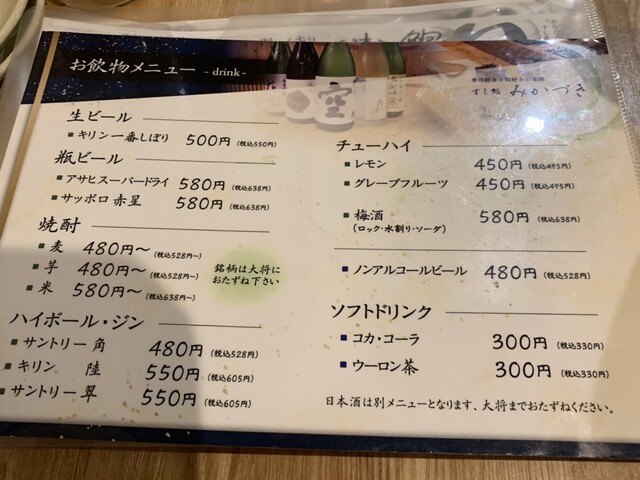 お飲物メニュー - drink -
すし処 みかづき
空
生ビール
キリン一番しぼり 500円 (税込550円)
瓶ビール
アサヒスーパードライ 580円 (税込638円)
サッポロ 赤星 580円 (税込638円)
焼酎
麦 480円～ (税込528円～)
芋 480円～ (税込528円～)
米 580円～ (税込638円～)
銘柄は大将に
おたずね下さい
ハイボール・ジン
サントリー 角 480円 (税込528円)
キリン 陸 550円 (税込605円)
サントリー 翠 550円 (税込605円)
チューハイ
レモン 450円 (税込495円)
グレープフルーツ 450円 (税込495円)
梅酒 580円 (税込638円)
(ロック・水割り・ソーダ)
ノンアルコールビール 480円 (税込528円)
ソフトドリンク
コカ・コーラ 300円 (税込330円)
ウーロン茶 300円 (税込330円)
日本酒は別メニューとなります、大将までおたずねください。